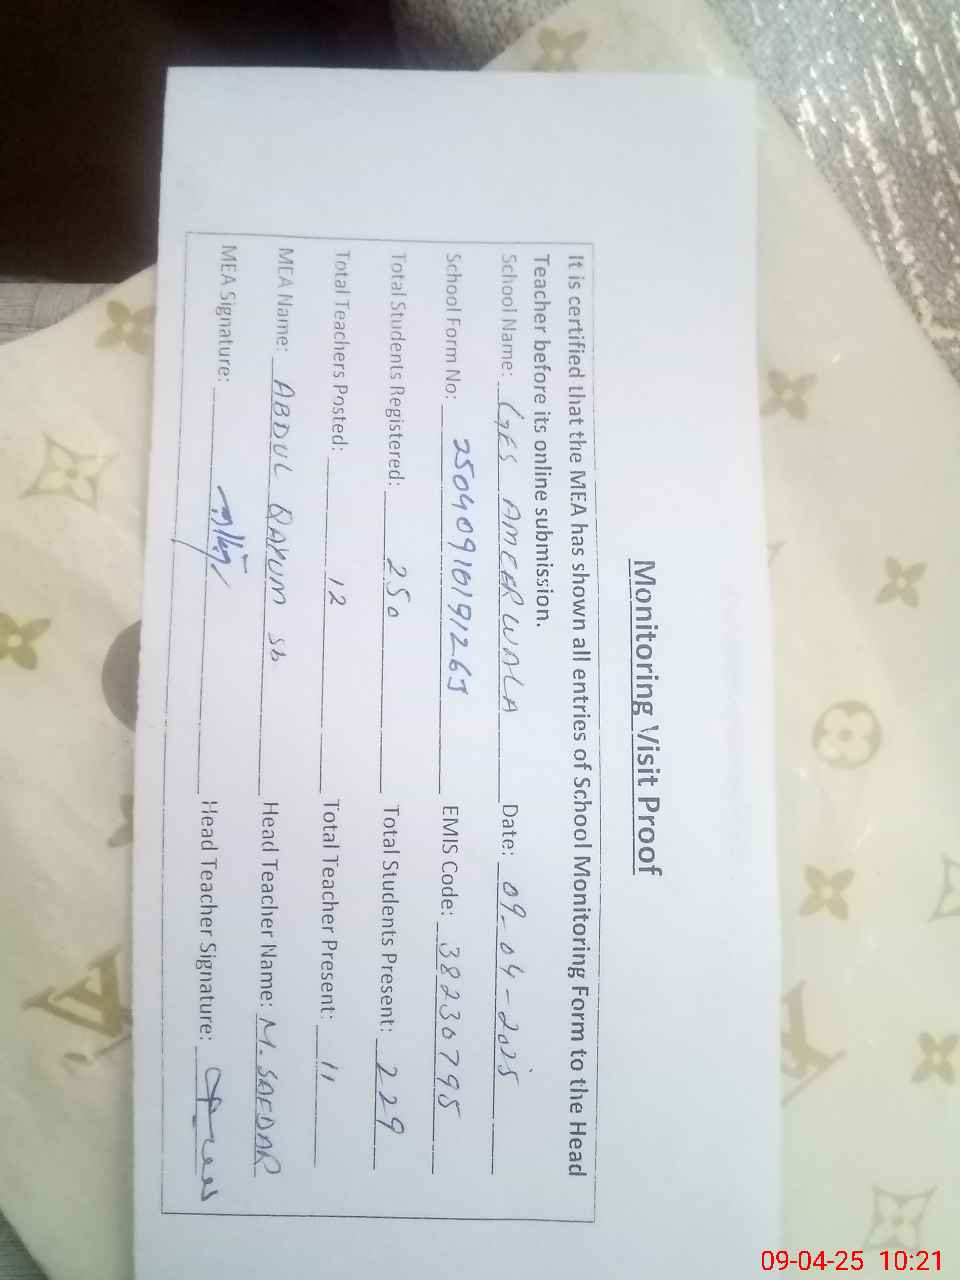 Monitoring Visit Proof
It is certified that the MEA has shown all entries of School Monitoring Form to the Head
Teacher before its online submission.
School Name: GES AMEERWALA Date: 09-04-2025
School Form No: 2504091619126J EMIS Code: 38230795
Total Students Registered: 250 Total Students Present: 229
Total Teachers Posted: 12 Total Teacher Present: 11
MEA Name: ABDUL QAYUM sb Head Teacher Name: M. SAFDAR
MEA Signature: Head Teacher Signature:
09-04-25 10:21